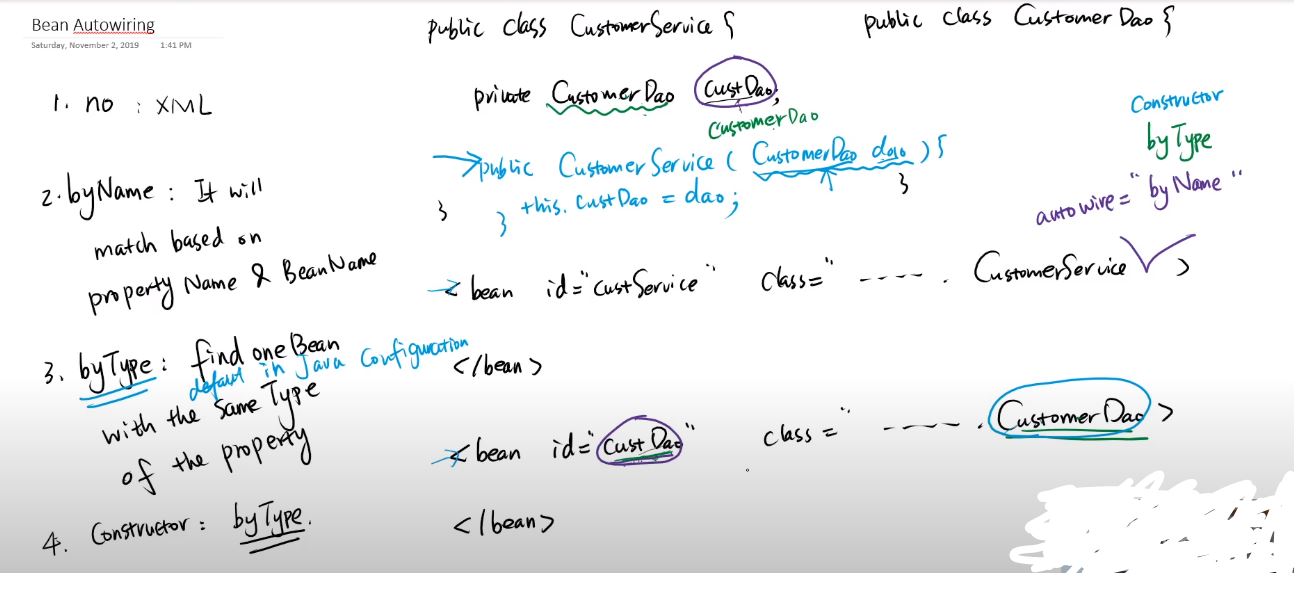 Bean Autowiring
Saturday, November 2, 2019 1:41 PM
1. no : XML
2. byName : It will
match based on
property Name & BeanName
3. byType : find one Bean
default in Java Configuration
with the Same Type
of the property
4. Constructor : byType.
public class CustomerService {
private CustomerDao custDao;
CustomerDao
public CustomerService ( CustomerDao dao ) {
this. custDao = dao ;
}
}
public class Customer Dao {
}
Constructor
byType
autowire= "byName"
< bean id="custService" class=" ---- . CustomerService >
</bean>
< bean id="custDao" class=" ---- . CustomerDao >
</bean>